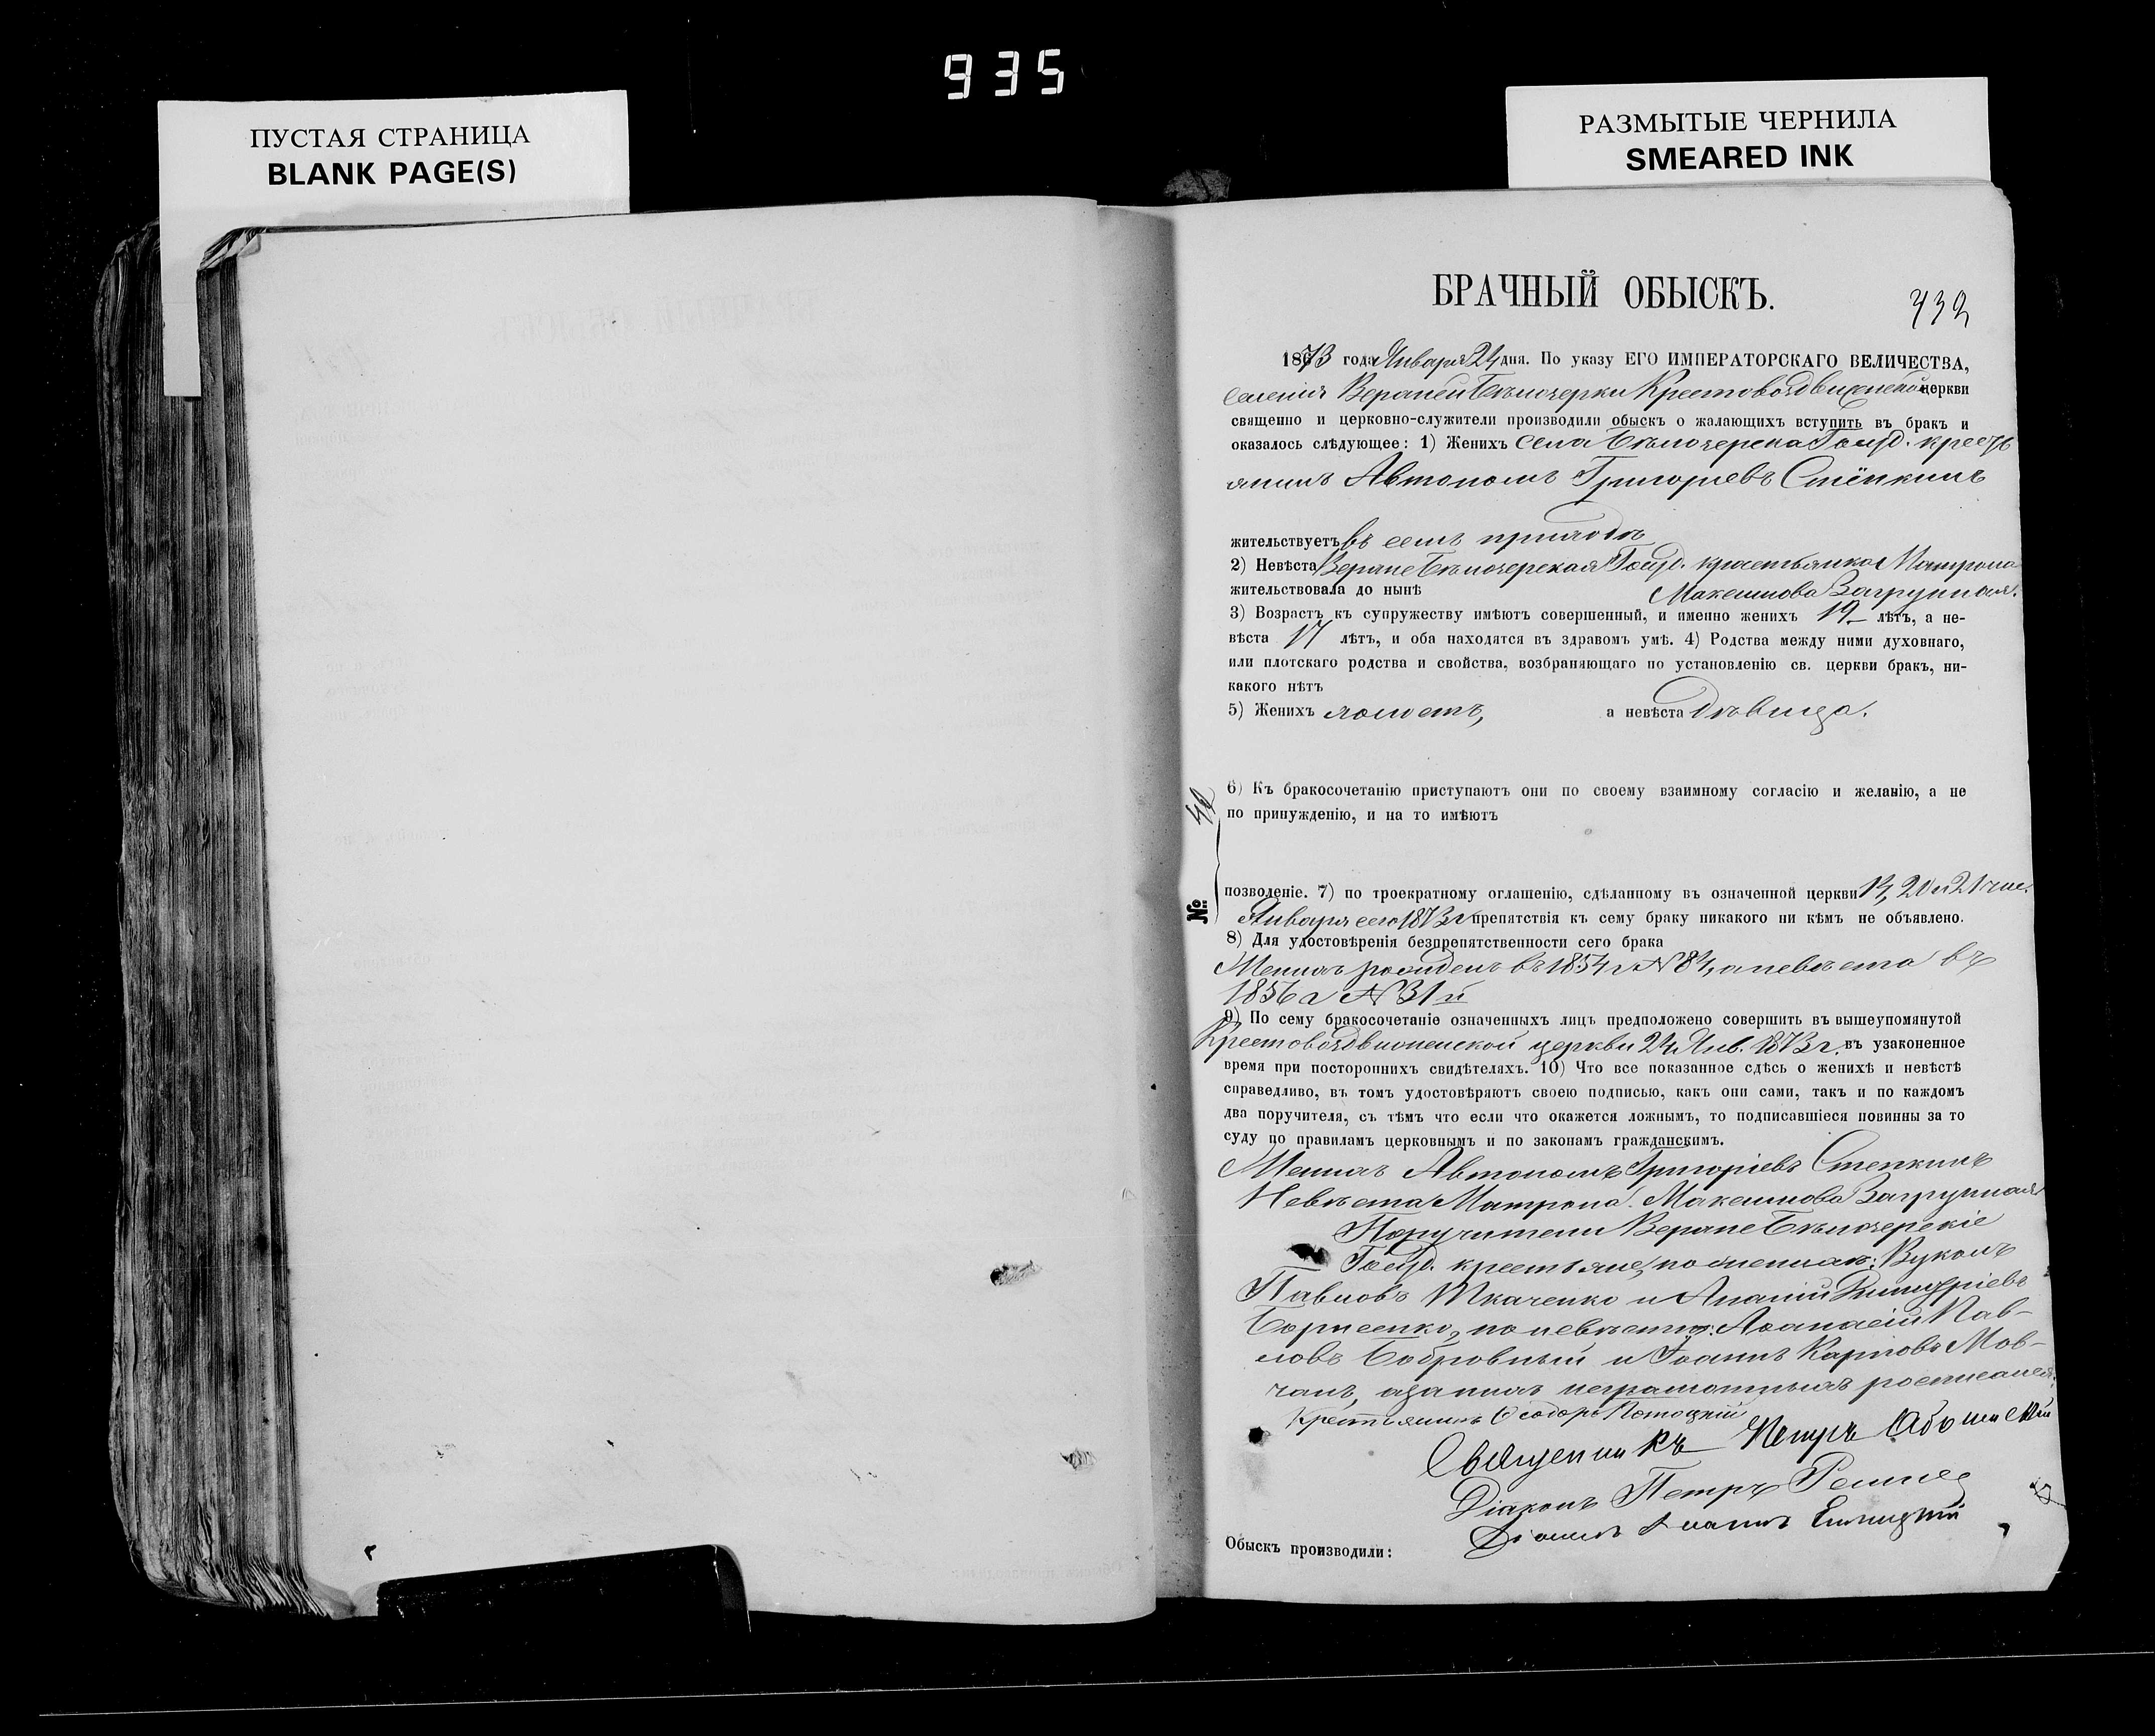 935
ПУСТАЯ СТРАНИЦА
BLANK PAGE(S)
РАЗМЫТЫЕ ЧЕРНИЛА
SMEARED INK
БРАЧНЫЙ ОБЫСКЪ.
732
1873 года Января 24 дня. По указу ЕГО ИМПЕРАТОРСКАГО ВЕЛИЧЕСТВА,
селенія Верхней Бѣлозерки Крестовоздвиженской церкви
священно и церковно-служители производили обыскъ о жалающихъ вступить въ бракъ и
оказалось слѣдующее: 1) Женихъ села Бѣлозерска Госуд. кресть
янинъ Автономъ Григорьевъ Стёпкинъ
жительствуетъ въ семъ приходѣ
2) Невѣста Верхне Бѣлозерская Госуд. крестьянка Матрона
жительствовала до нынѣ Максимова Загрупная.
3) Возрастъ къ супружеству имѣютъ совершенный, и именно женихъ 19 лѣтъ, а не-
вѣста 17 лѣтъ, и оба находятся въ здравомъ умѣ. 4) Родства между ними духовнаго,
или плотскаго родства и свойства, возбраняющаго по установленію св. церкви бракъ, ни-
какого нѣтъ
5) Женихъ холостъ, а невѣста дѣвица.
6) Къ бракосочетанію приступаютъ они по своему взаимному согласію и желанію, а не
по принужденію, и на то имѣютъ
№
позволеніе. 7) по троекратному оглашенію, сдѣланному въ означенной церкви 20 и 21 чис.
Января сего 1873 г. препятствія къ сему браку никакого ни кѣмъ не объявлено.
8) Для удостовѣренія безпрепятственности сего брака
Женихъ рожденъ въ 1854 г № 84, а невѣста въ
1856 г № 31 й
9) По сему бракосочетаніе означенныхъ лицъ предположено совершить въ вышеупомянутой
Крестовоздвиженской церкви 24 Янв. 1873 г. въ узаконенное
время при постороннихъ свидѣтеляхъ. 10) Что все показанное сдѣсь о женихѣ и невѣстѣ
справедливо, въ томъ удостовѣряютъ своею подписью, какъ они сами, такъ и по каждомъ
два поручителя, съ тѣмъ что если что окажется ложнымъ, то подписавшіеся повинны за то
суду по правиламъ церковнымъ и по законамъ гражданскимъ.
Женихъ Автономъ Григоріевъ Степкинъ
Невѣста Матрона Максимова Загрупная
Поручители Верхне Бѣлозерскіе
Госуд. крестьяне, по женихѣ: Вуколъ
Павловъ Ткаченко и Ананій Димитріевъ
Борисенко, по невѣстѣ: Аѳанасій Пав-
ловъ Бобровный и Іоаннъ Карповъ Мов-
чанъ, а за нихъ неграмотныхъ росписался
крестьянинъ Ѳеодоръ Потоцкій
Священникъ Петръ
Діаконъ Петръ
Обыскъ производили: